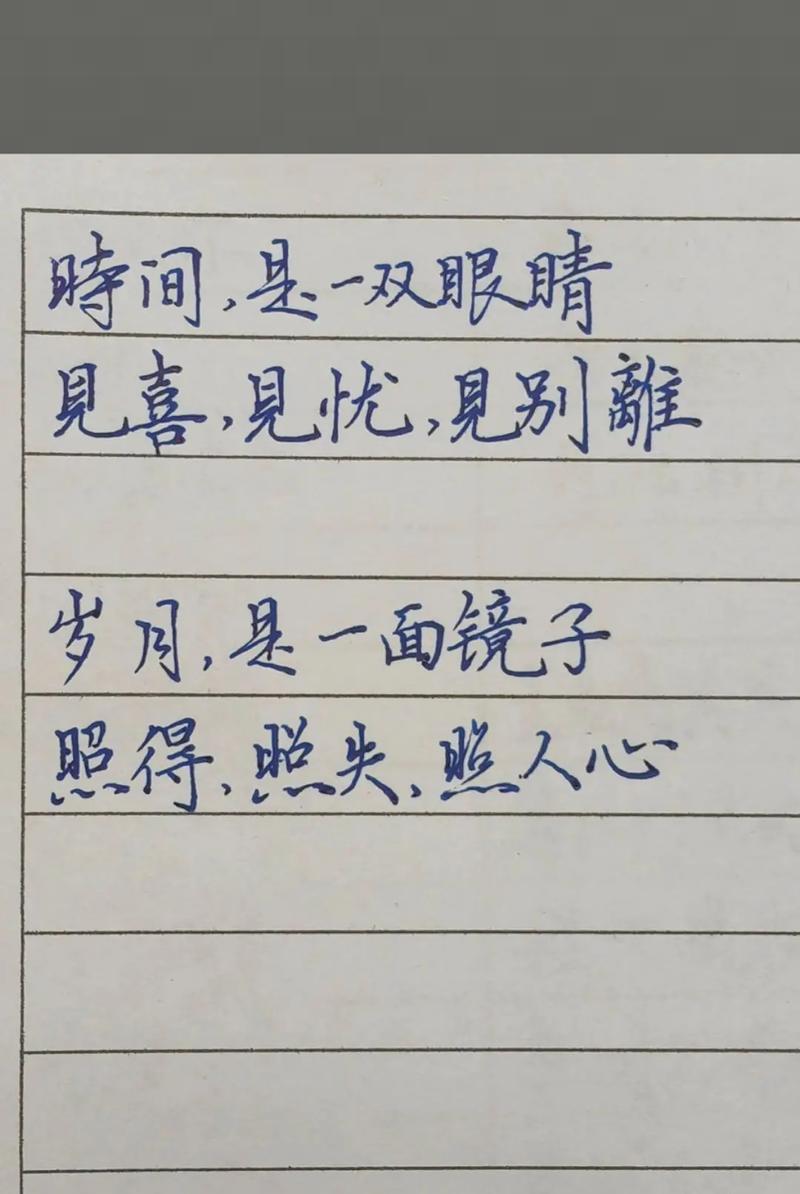 時间,是一双眼睛
見喜,見忧,見别離
岁月,是一面镜子
照得,照失,照人心